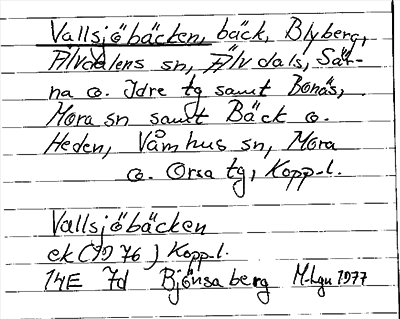 Vallsjöbäcken, bäck, Blyberg,
Älvdalens sn, Älvdals, Sär-
na o. Idre tg samt Bonäs,
Mora sn samt Bäck o.
Heden, Våmhus sn, Mora
o. Orsa tg, Kopp.l.
Vallsjöbäcken
ek (1976) Kopp.l.
14E 7d Björnsaberg M-Lgn 1977